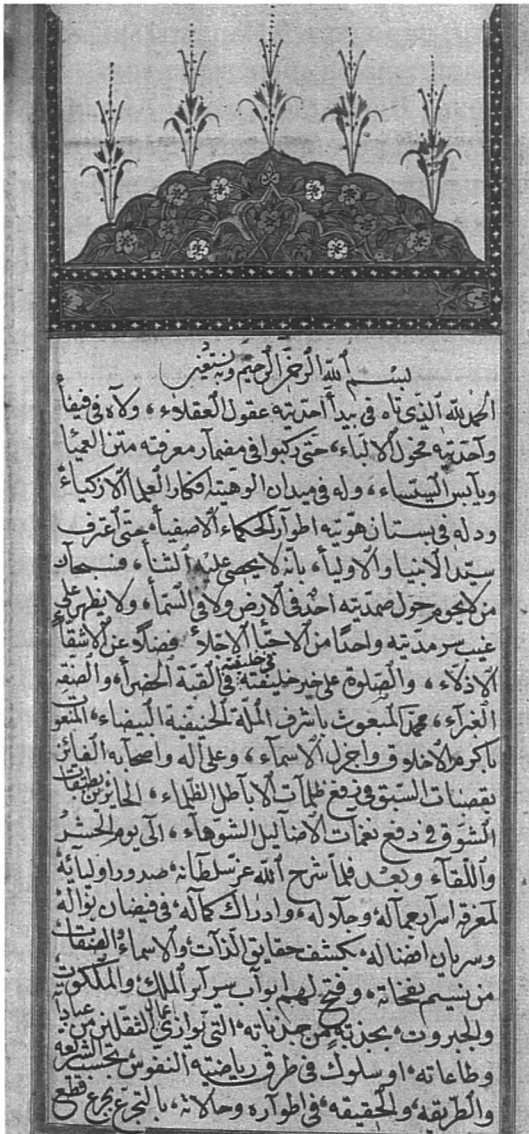 بسم الله الرحمن الرحيم وبه نستعين
الحمد لله الذي تاه في بيدآ احديته عقول العقلاء، ولاه في فيفآ
وآحديته فحول الالبآء، حتى ركبوا في مضمار معرفته متن العميآ
، وله في ميدان الوهيته افكار العلمآ الازكيآء
ودله في بستان هويته اطوار الحكمآء الاصفيآ، حتى اعترف
سيد الانبيا والاوليآ، بآنه لا يحصى عليه الثنآ، فسبحان
من لا يحوم حول صمديته احد في الارض ولا في السمآ، ولا يظهر على
غيب سرمديته واحدا من الاحبآ الاخلآ فضلا عن الاشقآ
الاذلآء، والصلوة على خير خليقته في خليقته في القبة الخضرآ، والصفة
الغرآء، محمد المبعوث باشرف الملة الحنيفية البيضاء، المنعوت
باكرم الاخلاق واجزل الاسمآء، وعلى آله واصحابه الفائزين
بقصبات السبق في رفع ظلمآت الابآطل الظلماء، الحائزين
الشوق في دفع نغمات الاضآليل الشوهآء، الى يوم الحشر
واللقآء وبعد فلمآ شرح الله عز سلطانه، صدور اوليآئه
لمعرفة اسرار جمآله وجلاله، وادراك كمآله، في فيضان نواله
وسريان افضاله، بكشف حقايق الذآت والاسمآء والصفات
من نسيم نفحاته، وفتح لهم ابوآب سرآئر الملك والملكوت
والجبروت، بجذبة من جذباته، التى توازي عمل الثقلين من عباداته
وطاعاته، او سلوك في طرق رياضية النفوس بحسب الشريعة
والطريقه، والحقيقه، في اطواره وحالاته، بالتجرع بجرع قطع